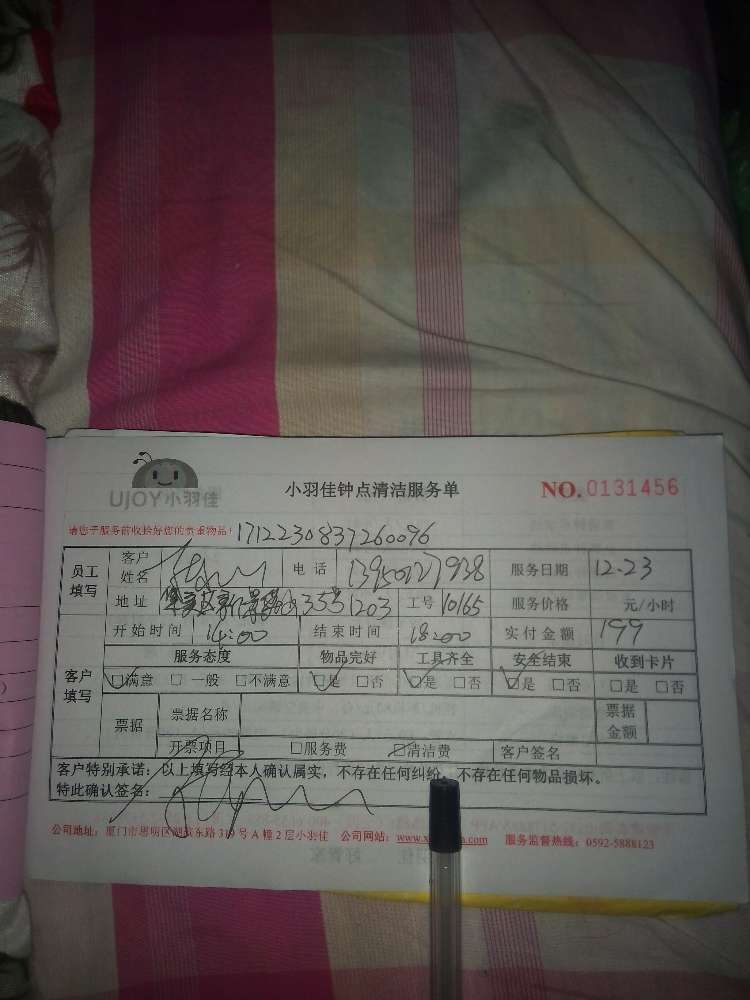 UJOY小羽佳
小羽佳钟点清洁服务单
NO.0131456
请您于服务前收拾好您的贵重物品! 1712230837260096
员工填写 客户姓名 电话 13950127938 服务日期 12.23
地址 353号1203 工号 10165 服务价格 元/小时
客户填写 开始时间 14:00 结束时间 18:00 实付金额 199
服务态度 物品完好 工具齐全 安全结束 收到卡片
□满意 □一般 □不满意 □是 □否 □是 □否 □是 □否 □是 □否
票据 票据名称 票据金额
开票项目 □服务费 □清洁费 客户签名
客户特别承诺:以上填写经本人确认属实,不存在任何纠纷,不存在任何物品损坏。
特此确认签名:
公司地址:厦门市思明区湖滨东路319号A幢2层小羽佳 公司网站: 服务监督热线:0592-5888123